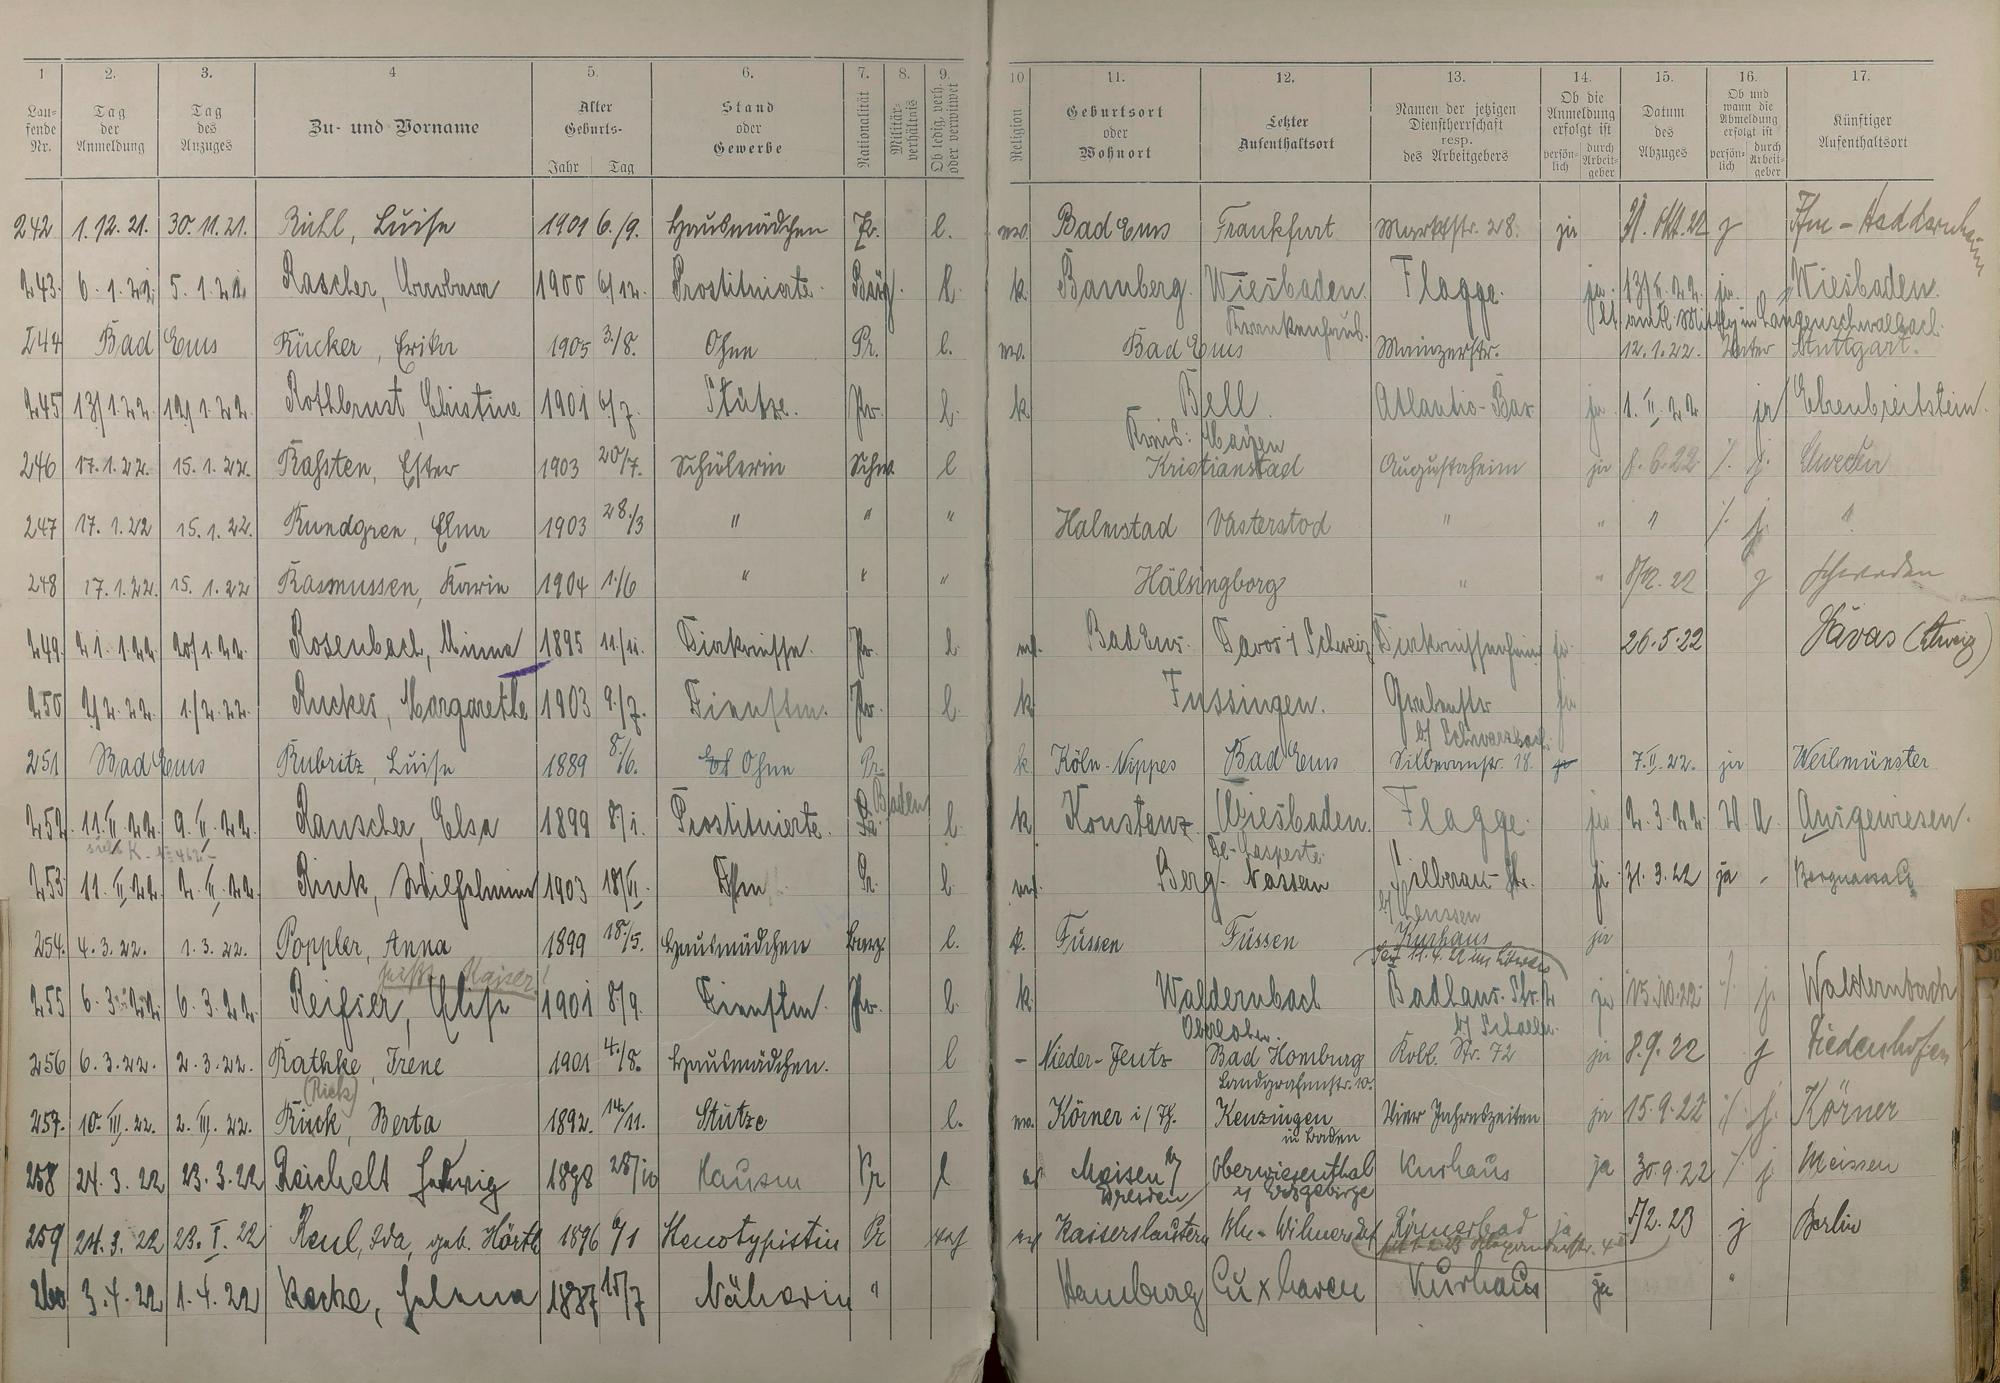 1 2. 3. 4 5. 6. 7. 8. 9. 10 11. 12. 13. 14. 15. 16. 17.
Lau-fende Nr. Tag der Anmeldung Tag des Anzuges Zu- und Vorname Alter Geburts- Jahr Tag Stand oder Gewerbe Nationalität Militär-verhältnis Ob ledig, verh. oder verwitwet Religion Geburtsort oder Wohnort Letzter Aufenthaltsort Namen der jetzigen Dienstherrschaft resp. des Arbeitgebers Ob die Anmeldung erfolgt ist persön-lich durch Arbeit-geber Datum des Abzuges Ob und wann die Abmeldung erfolgt ist persön-lich durch Arbeit-geber Künftiger Aufenthaltsort
242 1.12.21. 30.11.21. Luise 1901 6./9. Hausmädchen Pr. l. Bad Ems Frankfurt Marktstr. 28. ja 31. Okt. 22 j Ffm - Heddernheim
243. 6.1.22. 5.1.22. Rascher, Barbara 1900 6/12. Prostituierte. l. k. Bamberg. Wiesbaden. Flagge. ja. ja. Wiesbaden.
Krankenhaus. Langenschwalbach.
244 Bad Ems Rücker, Erika 1905 3./8. Ohne Pr. l. Bad Ems Mainzerstr. 12.1.22. Stuttgart.
245 13/1.22. 12/1.22. Rothbrust, Christine 1901 6/7. Stütze. Pr. l. k. Bell. Atlantic-Bar ja 1. II. 22 ja Ehrenbreitstein.
Mayen
246 17.1.22. 15.1.22. Rahsten, Ester 1903 20/7. Schülerin Schw. l Kristianstad Augustaheim ja 8.6.22 j. Schweden
247 17.1.22 15.1.22. Rundgren, Elna 1903 28./3 " " " Halmstad Västerstod " " " j. "
248 17.1.22. 15.1.22 Rasmussen, Karin 1904 1./6 " " " Hälsingborg " " j Schweden
249. 21.1.22. 20/1.22. Rosenbach, Minna 1895 11/11. Diakonisse. Pr. l Bad Ems. Davos i/ Schweiz Diakonissenheim ja 26.5.22 Davos (Schweiz)
250 2/2.22. 1./2.22. Ruckes, Margarethe 1903 9./7. Dienstm. Pr. l. k Fussingen. Grabenstr ja
b/ Schwarzbach.
251 Bad Ems Rubritz, Luise 1889 8./6. Ohne Pr. k Köln-Nippes Bad Ems Silberaustr. 18. 7. II. 22. ja Weilmünster
252. 11. II. 22. 9. II. 22. Rauscher, Elsa 1899 8./1. Prostituierte. Baden l. k Konstanz Wiesbaden. Flagge. ja 2.3.22 Ausgewiesen.
253 11. II. 22. 2. II. 22. Rink, Wilhelmine 1903 18/VI. Ohne Pr. l. Berg-Nassau Silberau-Str. ja 31.3.22 ja - Bergnassau
254. 4.3.22. 1.3.22. Poppler, Anna 1899 18./5. Hausmädchen l. k. Füssen Füssen Kurhaus ja
heißt Kaiser!
255 6.3.22. 6.3.22. Reifser, Elise 1901 8/9. Dienstm. Pr. l. k Waldernbach Badhaus-Str. 2 ja 15.10.22 j. Waldernbach
b/ Schaeller.
256 6.3.22. 2.3.22. Rathke, Irene 1901 4./8. Hausmädchen. l - Nieder-Jeutz Bad Homburg Kobl. Str. 72 ja 8.9.22 j Diedenhofen
(Rick) Landgrafenstr. 10.
257. 10. III. 22. 2. III. 22. Rück, Berta 1892. 14./11. Stütze l. ev. Körner i/ Th. Kenzingen Vier Jahreszeiten ja 15.9.22 j. Körner
in Baden
258 24.3.22 23.3.22 Reichelt Hedwig 1898 28/10 Hausm Pr l Meisen b/ Oberwiesenthal Kurhaus ja 30.9.22 j Meissen
Dresden i/ Erzgebirge
259 24.3.22 23. I. 22 Reul, Ida, geb. Hörth 1896 6/1 Stenotypistin Pr Kaiserslautern Bln-Wilmersdf Römerbad ja 5/2.23 j Berlin
260 3.4.22 1.4.22 Racke, Helena 1887 15/7 Näherin " Hamburg Cuxhaven Kurhaus ja "